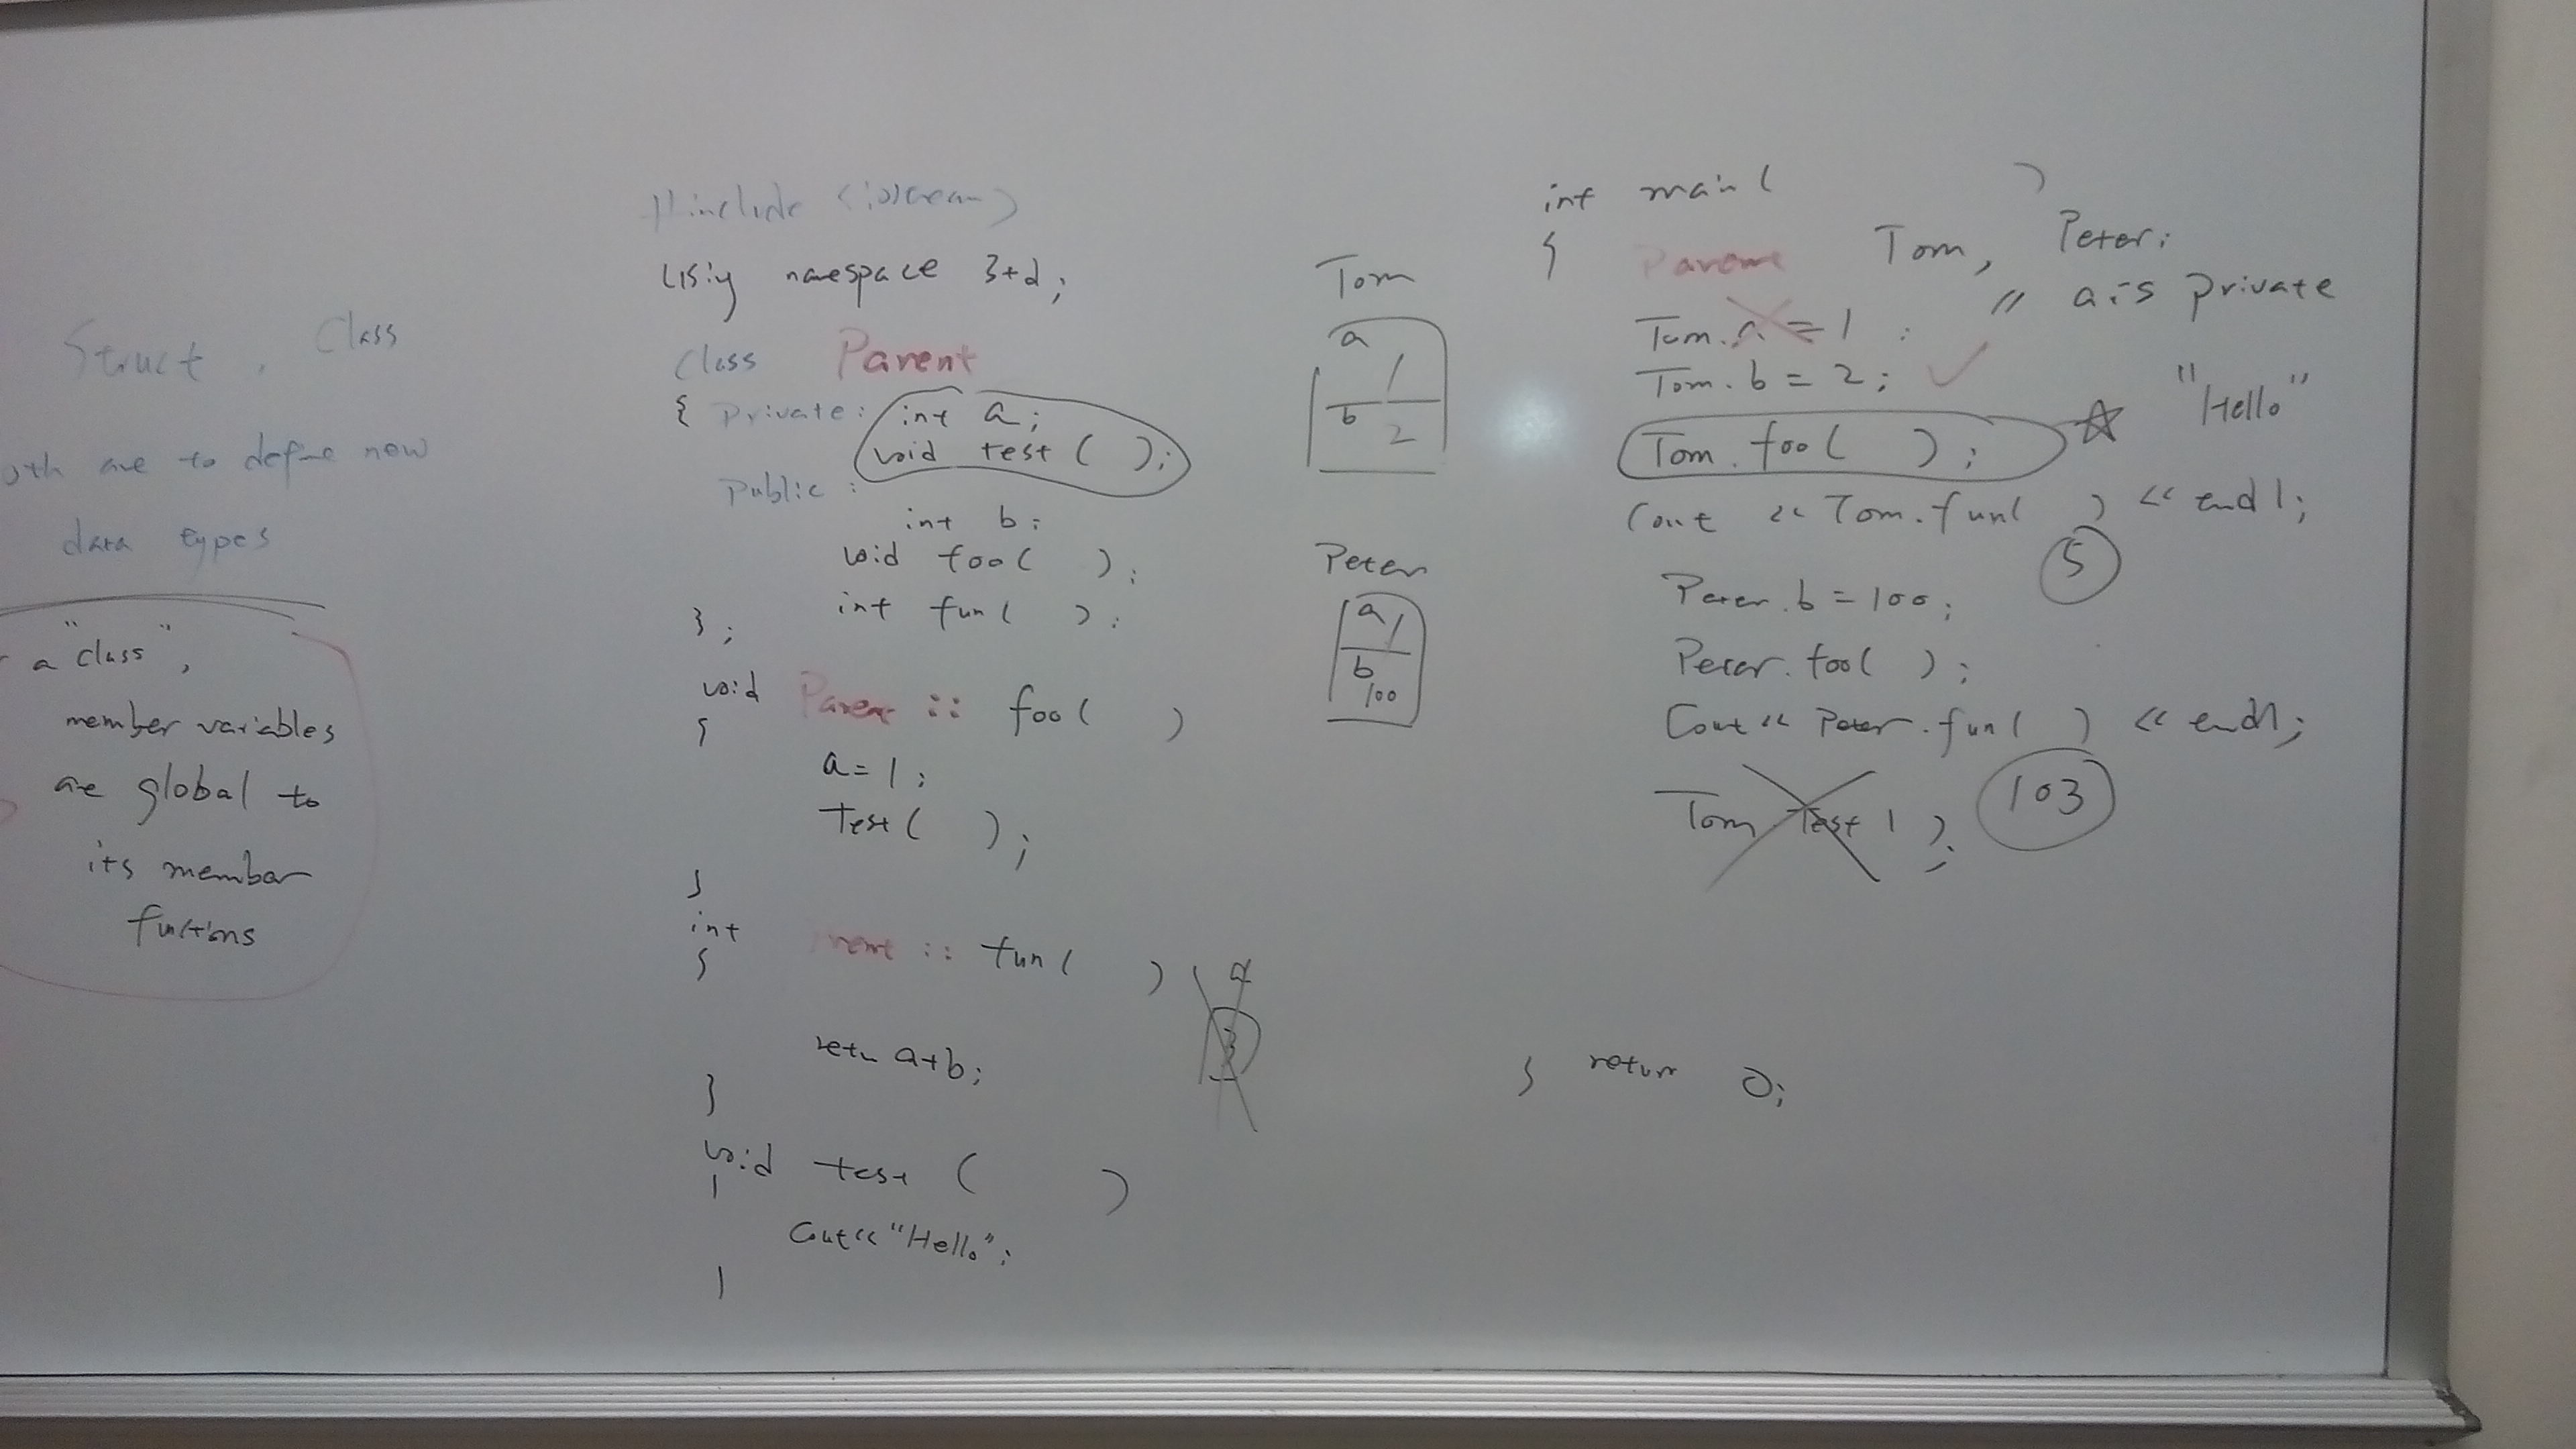 Struct, Class
are to define new
data types
a "class",
member variables
are global to
its member
functions
#include <iostream>
Using namespace std;
Class Parent
{ Private: int a;
void test( );
Public:
int b;
void foo( );
int fun( );
};
void Parent :: foo( )
{
a=1;
Test( );
}
int rent :: fun( )
{
return a+b;
}
void test ( )
{
Cout<<"Hello";
}
Tom
a 1
b 2
Peter
a 1
b 100
a
3
int main( )
{ Parent Tom, Peter;
Tom.a=1; // a is private
Tom.b=2; ✓
Tom.foo( ); ☆ "Hello"
Cout << Tom.fun( ) << endl;
5
Peter.b=100;
Peter.foo( );
Cout<< Peter.fun( ) << endl;
103
Tom Test( );
} return 0;